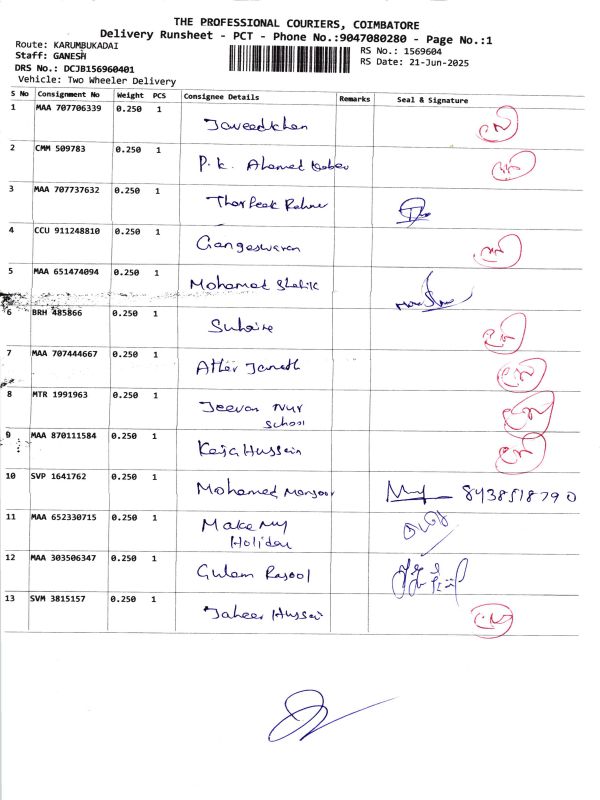 THE PROFESSIONAL COURIERS, COIMBATORE
Delivery Runsheet - PCT - Phone No.:9047080280 - Page No.:1
Route: KARUMBUKADAI
RS No.: 1569604
Staff: GANESH
RS Date: 21-Jun-2025
DRS No.: DCJB156960401
Vehicle: Two Wheeler Delivery
S No Consignment No Weight PCS Consignee Details Remarks Seal & Signature
1 MAA 707706339 0.250 1 Javeedkhan
2 CMM 509783 0.250 1 P.K. Ahamed
3 MAA 707737632 0.250 1
4 CCU 911248810 0.250 1 Gangeswaran
5 MAA 651474094 0.250 1 Mohamed Shafik
6 BRH 485866 0.250 1
7 MAA 707444667 0.250 1
8 MTR 1991963 0.250 1 Jeevan Nur
School
9 MAA 870111584 0.250 1 Hussain
10 SVP 1641762 0.250 1 Mohamed Mansoor 8438518790
11 MAA 652330715 0.250 1 Make My
Holiday
12 MAA 303506347 0.250 1 Gulam Rasool
13 SVM 3815157 0.250 1 Jaheer Hussain